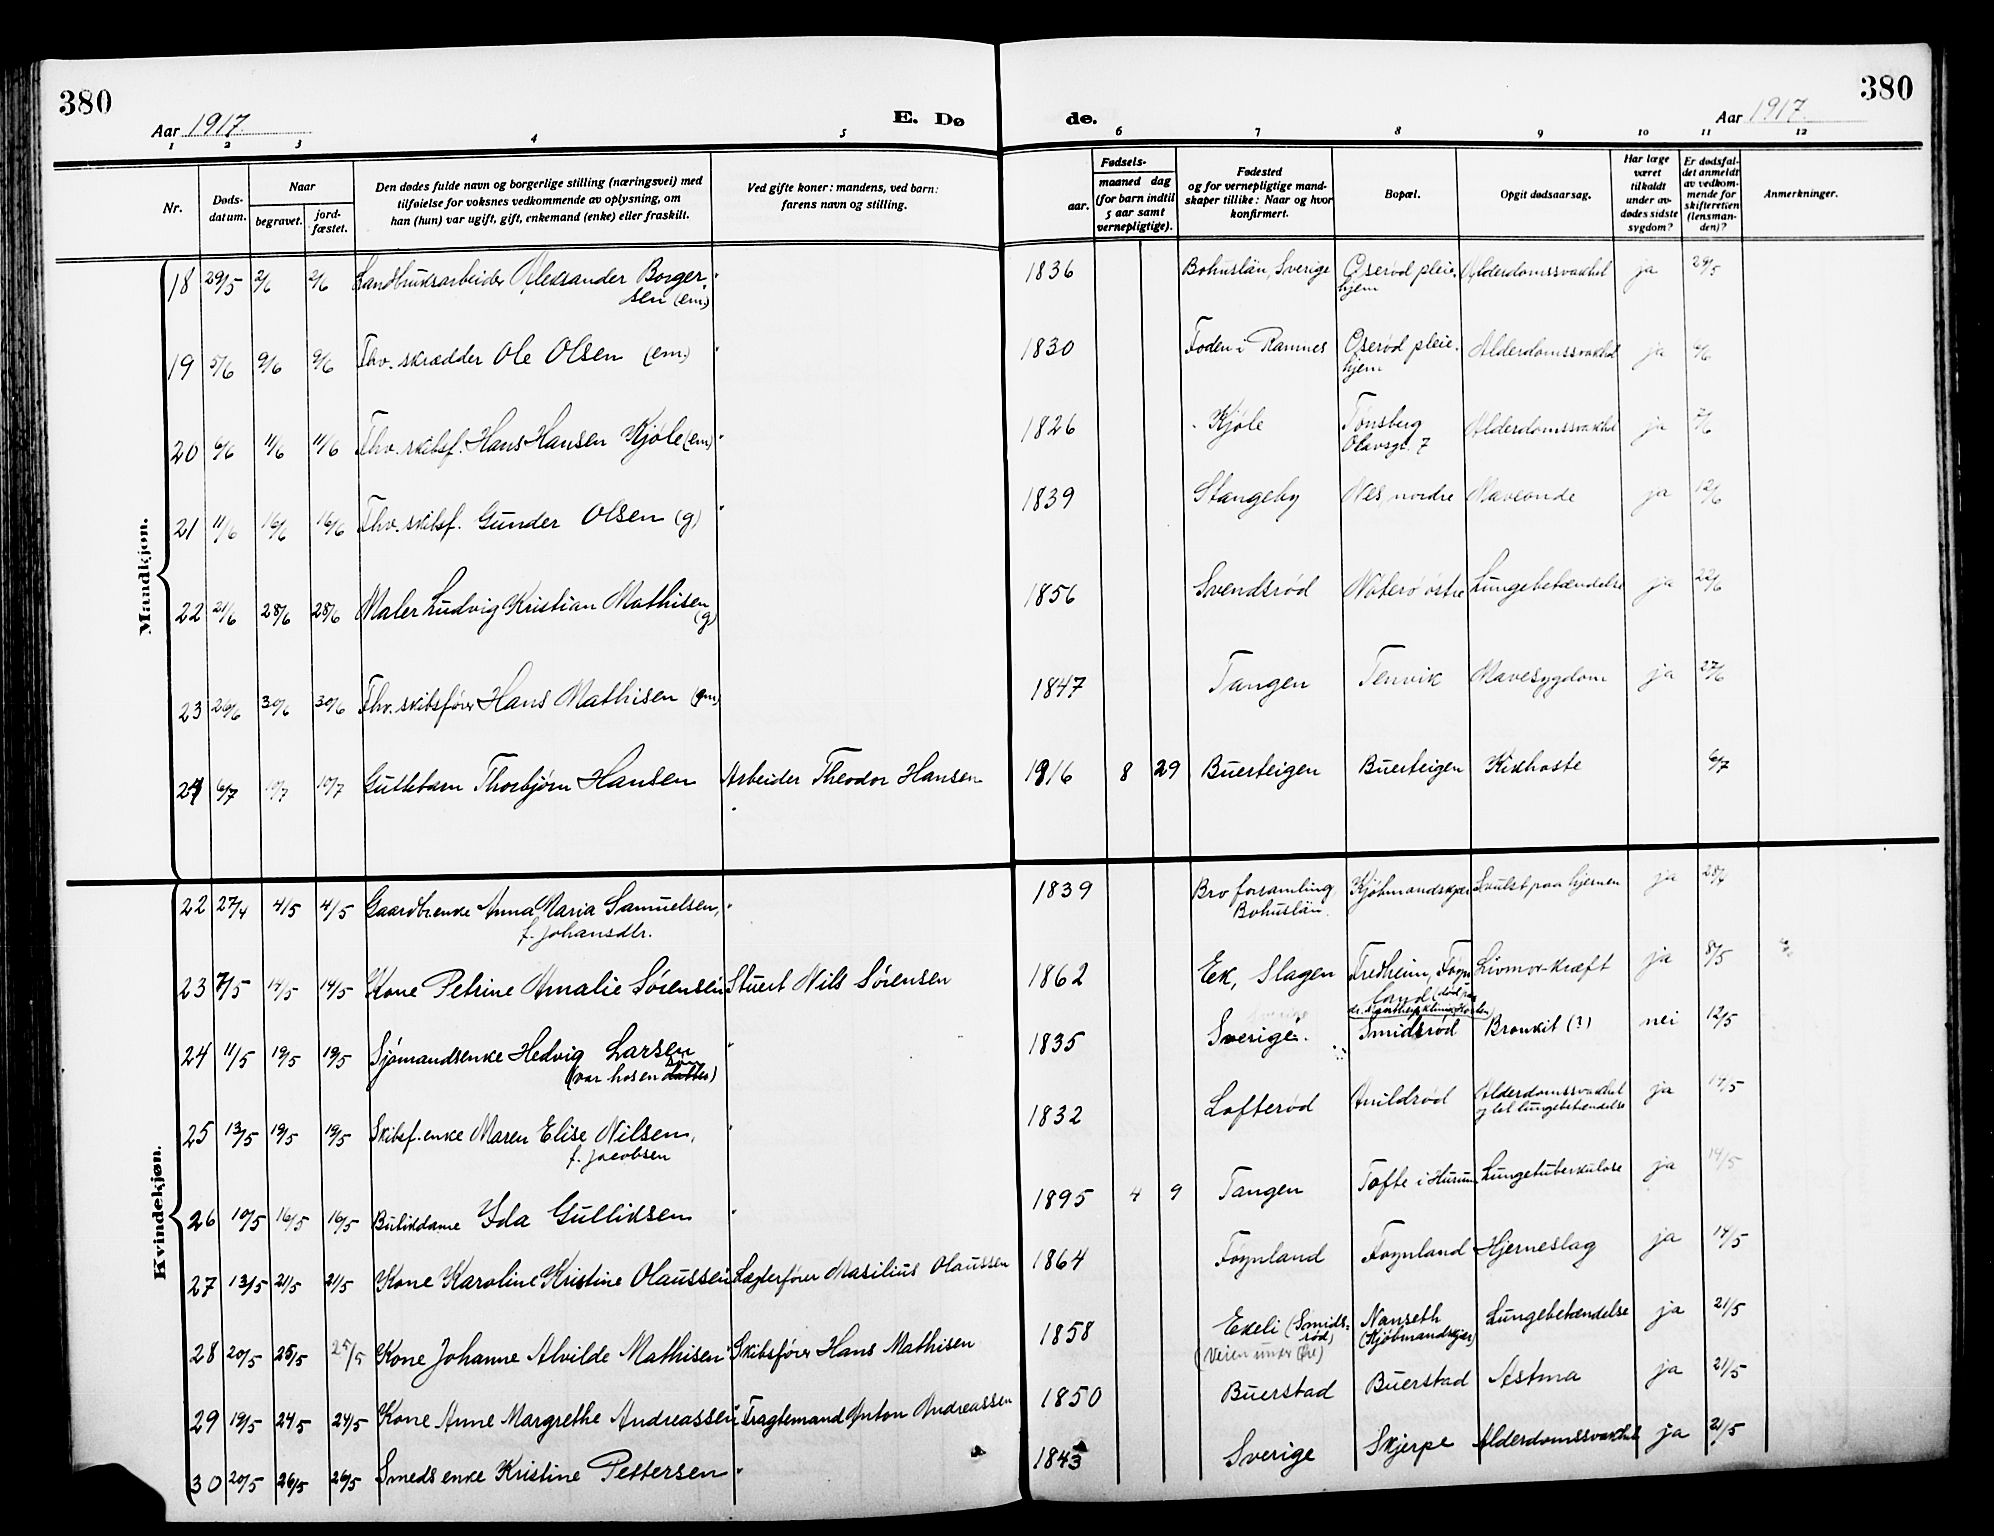 380
380
Aar 1917.
E. Dø
de.
Aar 1917.
1 2 3 4 5 6 7 8 9 10 11 12
Nr.
Døds-
datum.
Naar
begravet.
jord-
fæstet.
Den dødes fulde navn og borgerlige stilling (næringsvei) med
tilføielse for voksnes vedkommende av oplysning, om
han (hun) var ugift, gift, enkemand (enke) eller fraskilt.
Ved gifte koner: mandens, ved barn:
farens navn og stilling.
Fødsels-
aar.
maaned dag
(for barn indtil
5 aar samt
vernepligtige).
Fødested
og for vernepligtige mand-
skaper tillike: Naar og hvor
konfirmert.
Bopæl.
Opgit dødsaarsag.
Har læge
været
tilkaldt
under av-
dødes sidste
sygdom?
Er dødsfal-
det anmeldt
av vedkom-
mende for
skifteretten
(lensman-
den)?
Anmerkninger.
Mandkjøn.
18 29/5 2/6 2/6 Landbruksarbeider Aleksander Borger- 1836 Bohuslän, Sverige Oserød pleie- Alderdomssvakhet ja 29/5
sen (em.) hjem
19 5/6 9/6 9/6 Fhv. skrædder Ole Olsen (em.) 1830 Foden i Ramnes Oserød pleie- Alderdomssvakhet ja 6/6
hjem
20 6/6 11/6 11/6 Fhv. skibsf. Hans Hansen Kjøle (em) 1826 Kjøle Tønsberg Alderdomssvakhet ja 7/6
Olavsgt. 7
21 11/6 16/6 16/6 Fhv. skibsf. Gunder Olsen (g) 1839 Stangeby Nes, nordre Maveonde ja 12/6
22 21/6 28/6 28/6 Maler Ludvig Kristian Mathisen 1856 Svendsrød Nøterø østre Lungebetændelse ja 22/6
(g)
23 26/6 30/6 30/6 Fhv. skibsfører Hans Mathisen (em) 1847 Tangen Tenvik Mavesygdom ja 27/6
24 6/7 10/7 10/7 Guttebarn Thorbjørn Hansen Arbeider Theodor Hansen 1916 8 29 Buerteigen Buerteigen Kikhoste 6/7
Kvindekjøn.
22 27/4 4/5 4/5 Gaardbr.enke Anna Maria Samuelsen, 1839 Bro forsamling Kjøbmandskjær Svulst paa hjernen ja 28/4
f. Johansdtr. Bohuslän.
23 7/5 14/5 14/5 Kone Petrine Amalie Sørensen Stuert Nils Sørensen 1862 Eek, Slagen Fredheim, Føyn- Livmor-kræft ja 8/5
land
24 11/5 19/5 19/5 Sjømandsenke Hedvig Larsen 1835 Sverige. Smidsrød Bronkit (?) nei 12/5
(var hos en søn)
25 13/5 19/5 19/5 Skibsf.enke Maren Elise Nilsen, 1832 Lofterød Anildrød Alderdomssvakhet ja 14/5
f. Jacobsen og let lungebetændelse
26 10/5 16/5 16/5 Butikdame Ida Gulliksen 1895 4 9 Tangen Tofte i Hurum Lungetuberkulose ja 14/5
27 13/5 21/5 21/5 Kone Karoline Kristine Olaussen Lægterfører Masilius Olaussen 1864 Føynland Føynland Hjerneslag ja 14/5
28 20/5 25/5 25/5 Kone Johanne Alvilde Mathisen Skibsfører Hans Mathisen 1858 Ekeli (Smids- Nanseth Lungebetændelse ja 21/5
rød) (Kjøbmandskjær)
(Veien under Øre)
29 19/5 24/5 24/5 Kone Anne Margrethe Andreassen Fragtemand Anton Andreassen 1850 Buerstad Buerstad Astma ja 21/5
30 20/5 26/5 26/5 Smeds enke Kristine Pettersen 1843 Sverige Skjerpe Alderdomssvakhet ja 21/5